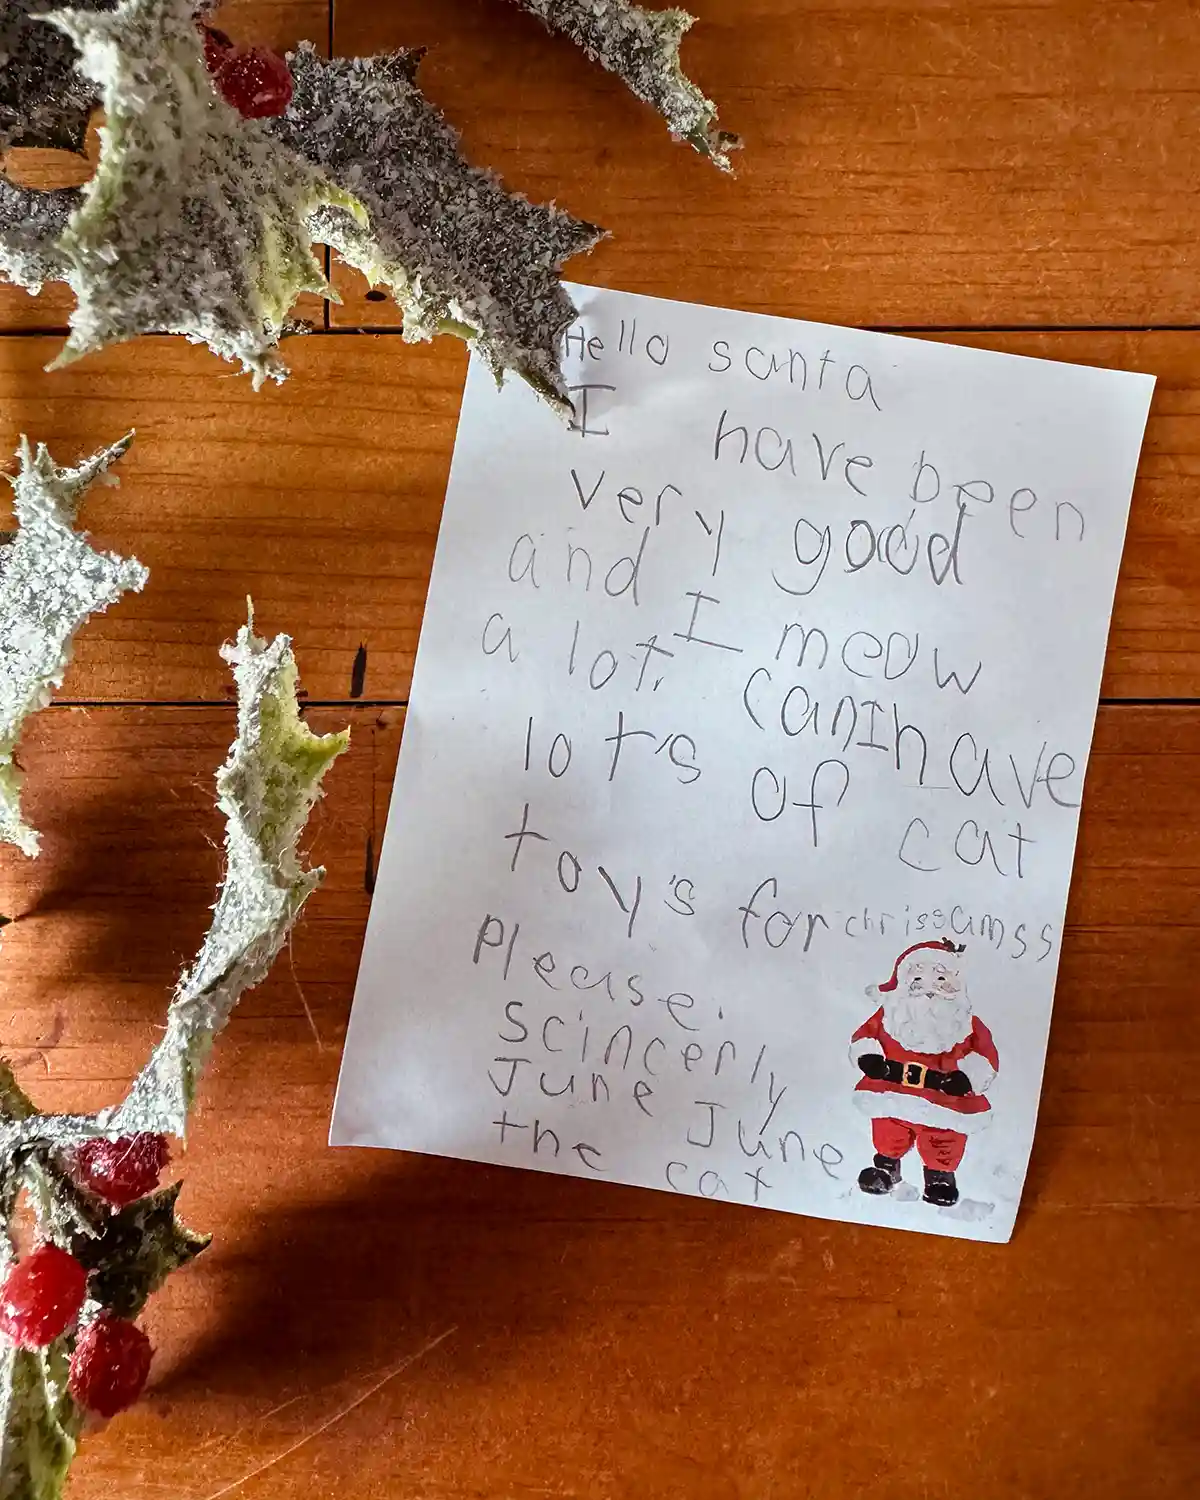 Hello santa
I have been
very good
and I meow
a lot. Can I have
lot's of cat
toy's for chrissamss
Please.
Scincerly
June June
the cat